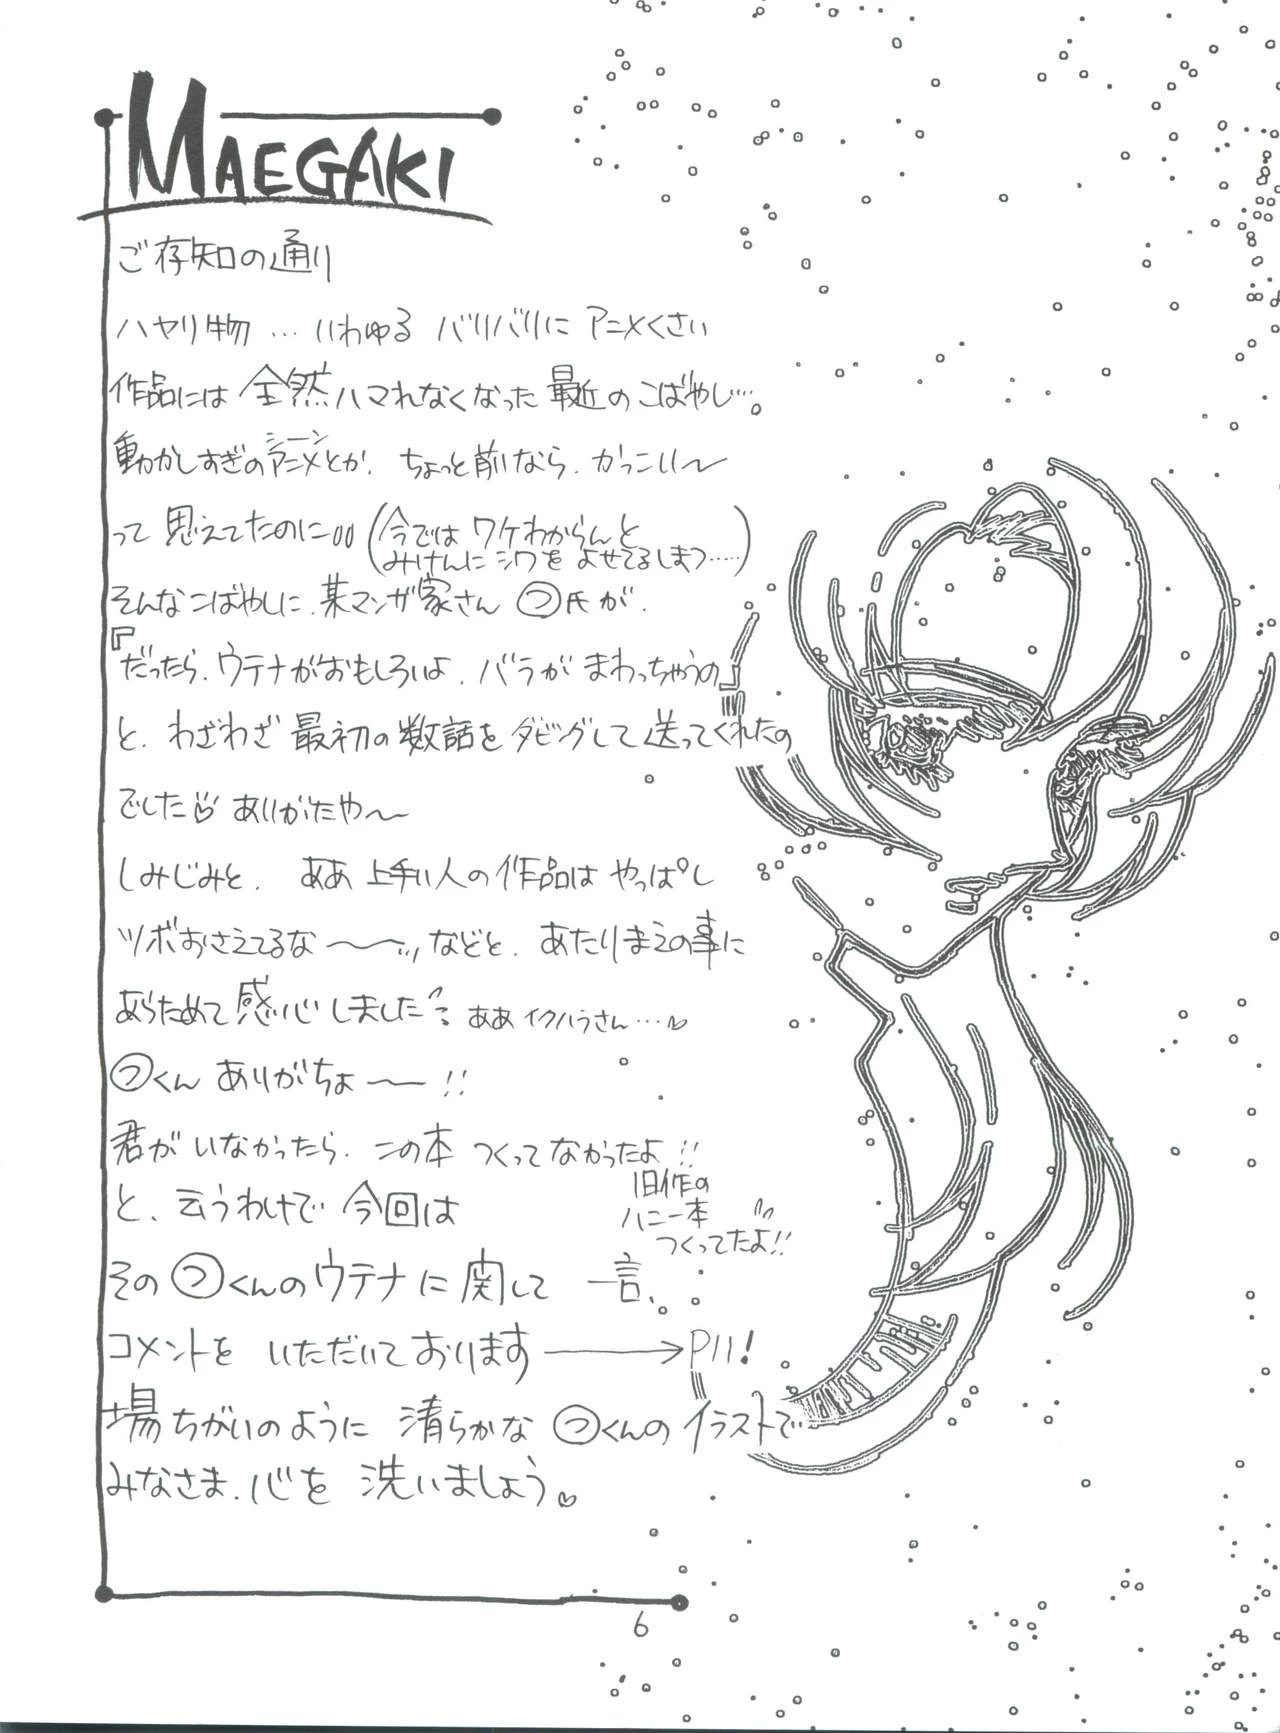 MAEGAKI
ご存知の通り
ハヤリ物…いわゆる バリバリに アニメくさい
作品には 全然ハマれなくなった 最近の こばやし…。
動かしすぎのアニメとか、ちょっと前なら、かっこい〜
シーン
って 思えてたのに
(今では ワケわからんと
みけんに シワを よせてるしまつ……)
そんなこばやしに、某マンガ家さん ㋡氏が、
『だったら、ウテナがおもしろいよ、バラが まわっちゃうの』
と、わざわざ 最初の数話を ダビングして 送ってくれたの
でした♡ ありがたや〜
しみじみと、ああ 上手い人の 作品は やっぱし
ツボおさえてるな〜〜ッ などと、あたりまえの事に
あらためて 感心しました ああ イクハラさん…♡
㋡くん ありがちょ〜!!
君が いなかったら、この本 つくって なかったよ!!
旧作の
ハニー本
つくってたよ!!
と、云うわけで 今回は
その ㋡くんの ウテナ に 関して 一言、
コメントを いただいて おります → P11!
場ちがいのように 清らかな ㋡くんの イラストで
みなさま、心を 洗いましょう♡
6